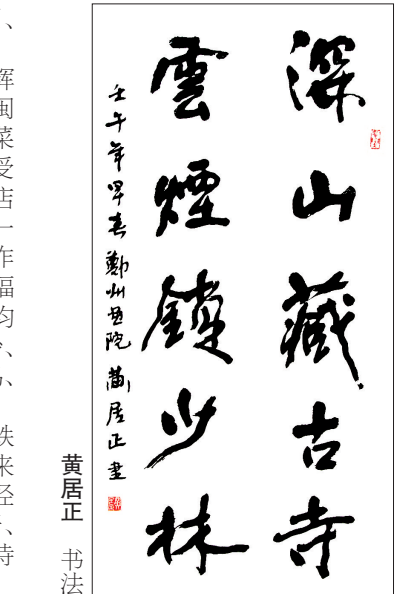 深山藏古寺
雲煙鎖少林
壬午年早春鄭州畫院黄居正書
黄居正 书法